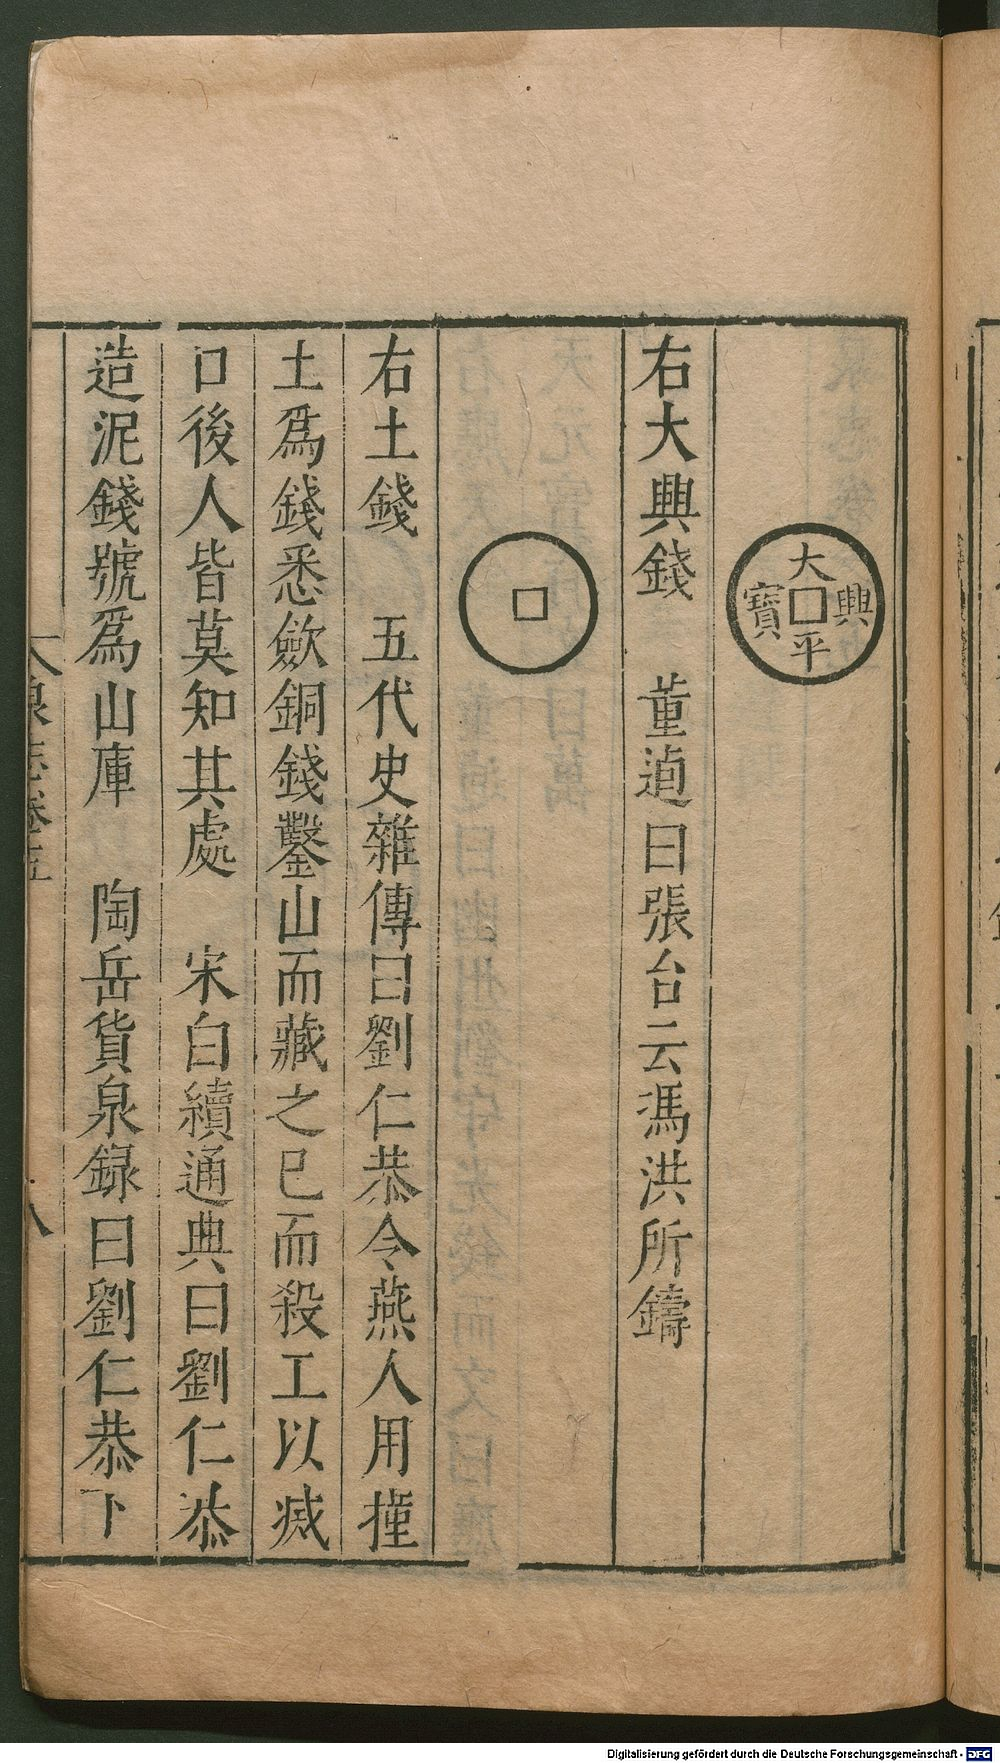 大興平寶
右大興錢　董逌曰張台云馮洪所鑄
右土錢　五代史雜傳曰劉仁恭令燕人用撞
土爲錢悉斂銅錢鑿山而藏之已而殺工以滅
口後人皆莫知其處　宋白續通典曰劉仁恭
造泥錢號爲山庫　陶岳貨泉録曰劉仁恭下
泉志卷
八
Digitalisierung gefördert durch die Deutsche Forschungsgemeinschaft - DFG